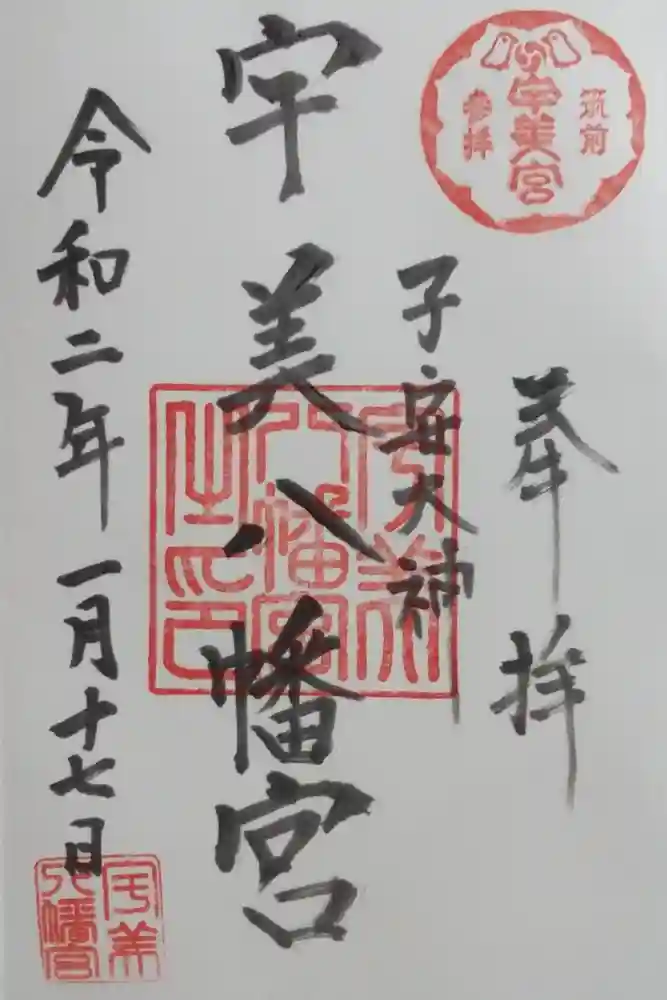 筑前
宇美宮
参拝
奉拝
子安大神
宇美八幡宮
宇美
八幡宮
之印
令和二年一月十七日
宇美
八幡宮